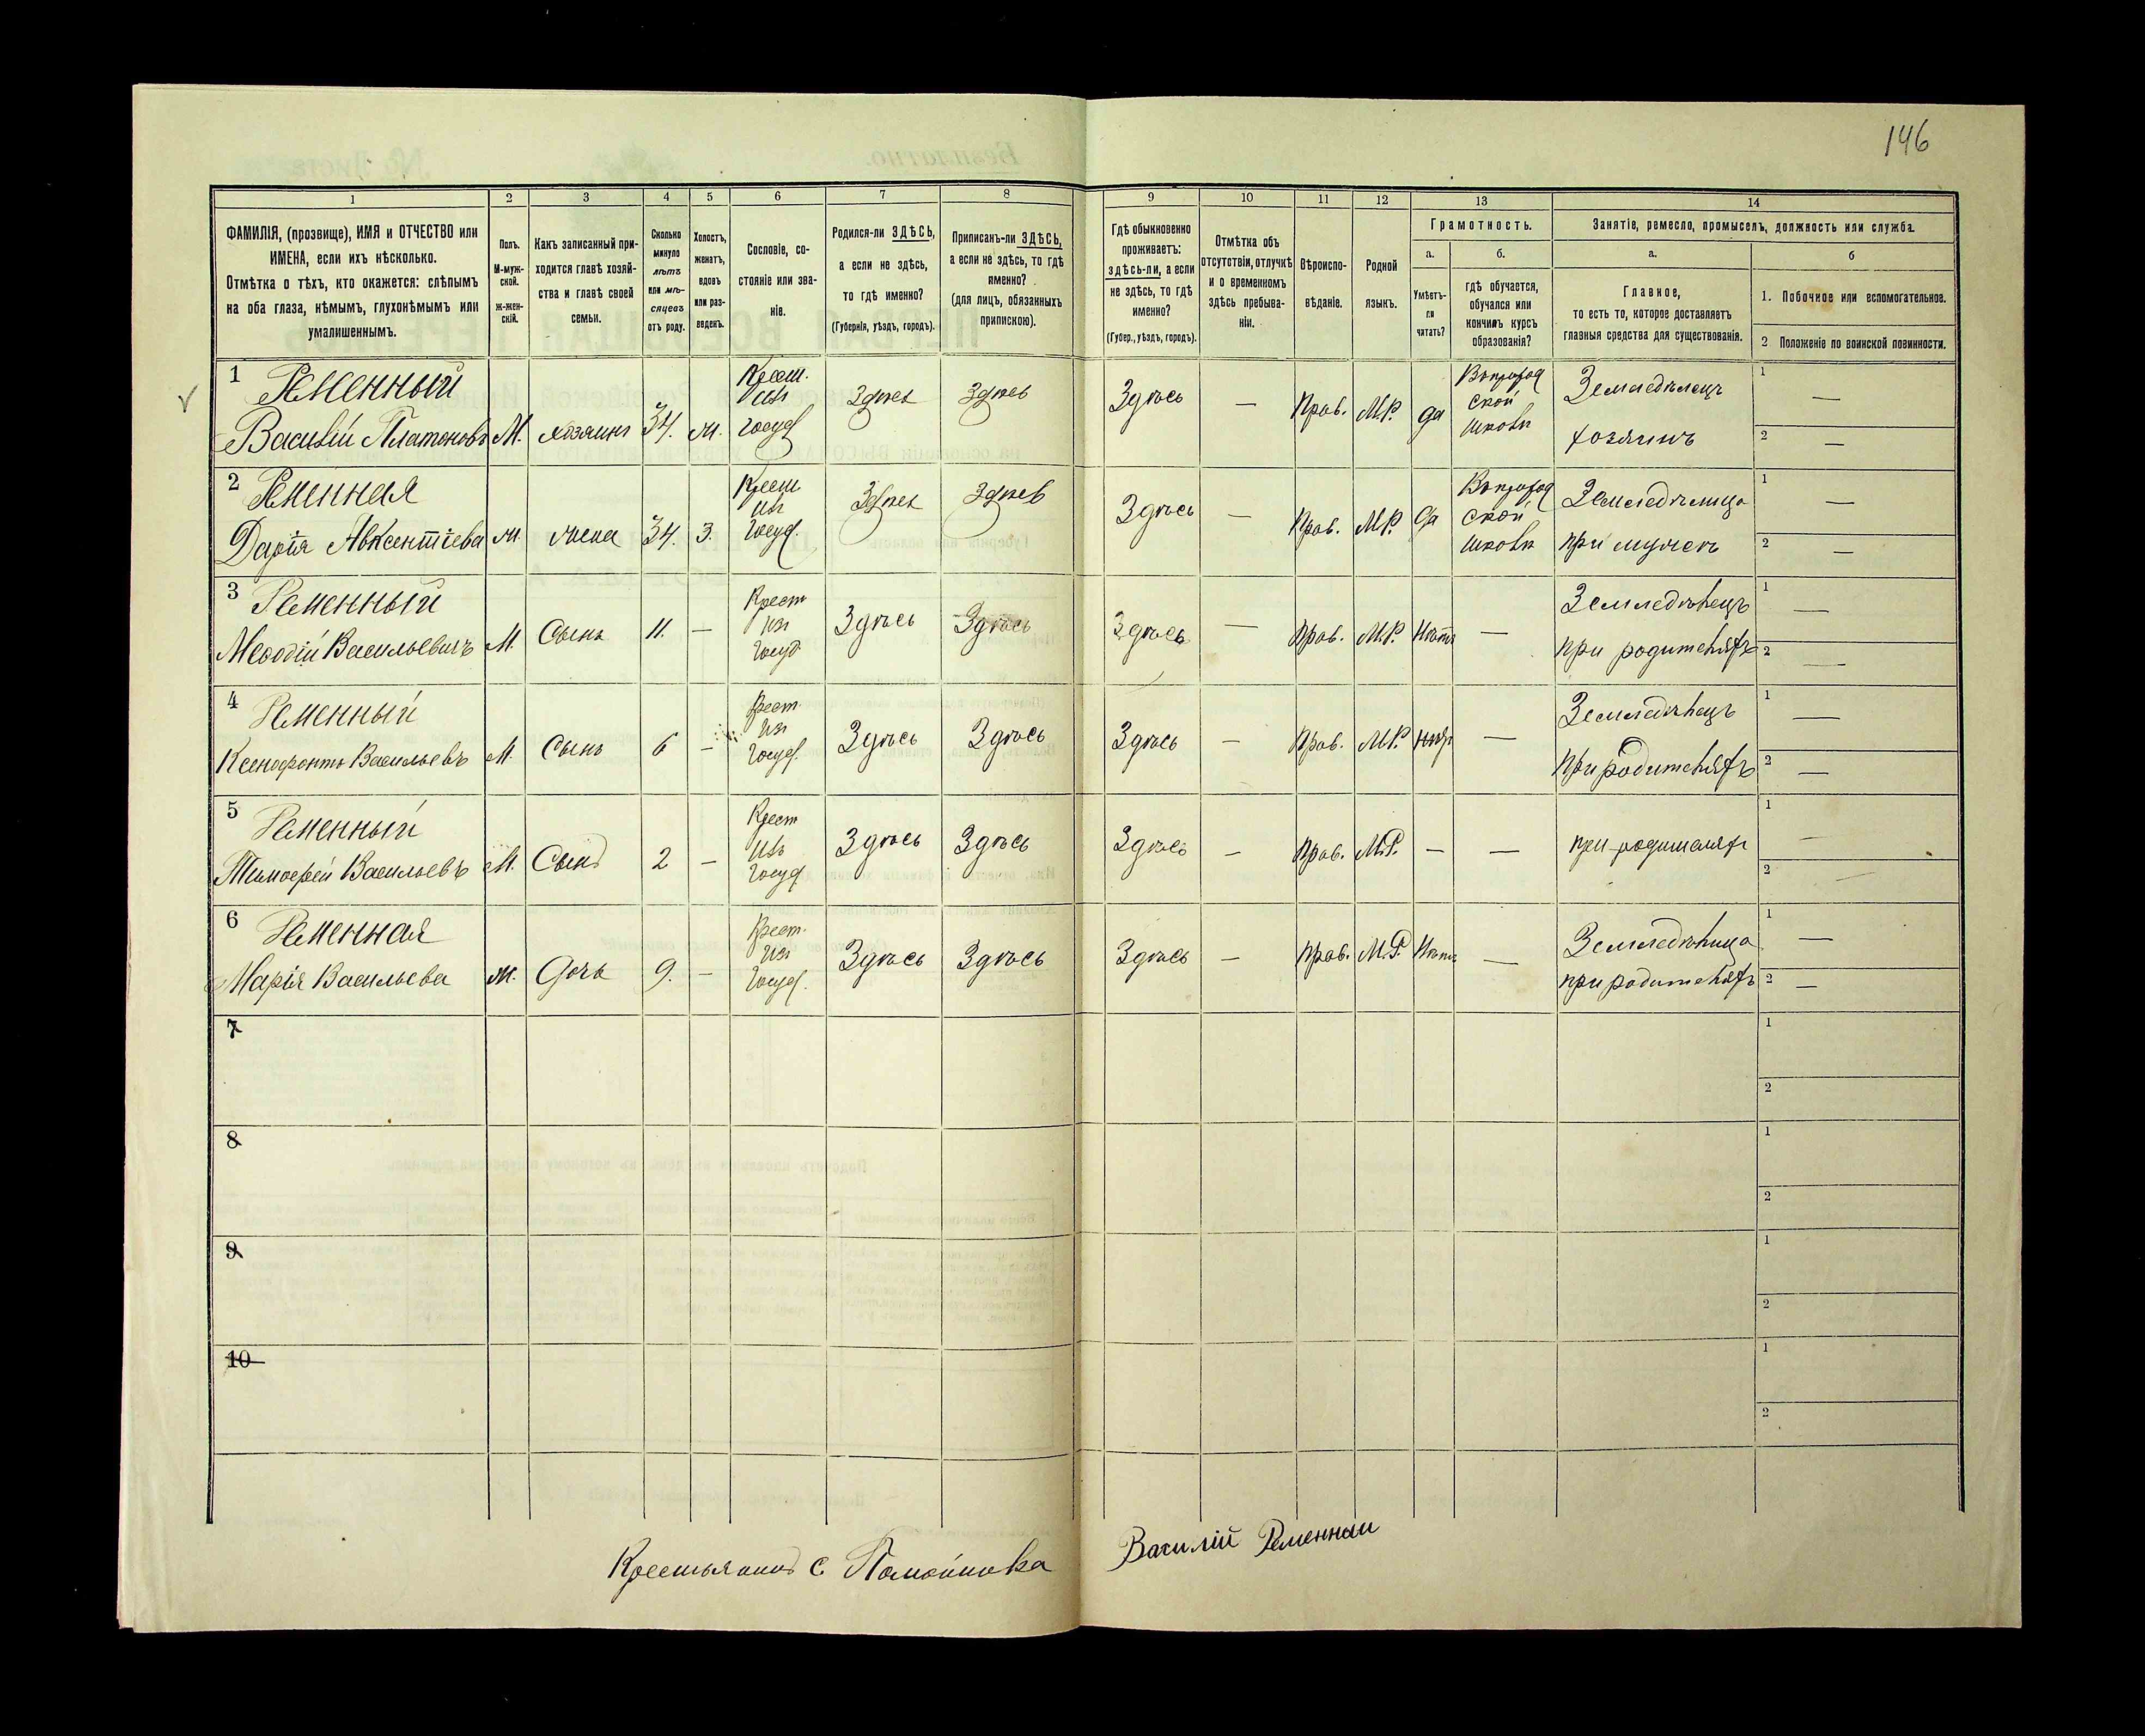 146
1 2 3 4 5 6 7 8 9 10 11 12 13 14
ФАМИЛІЯ, (прозвище), ИМЯ и ОТЧЕСТВО или
ИМЕНА, если ихъ нѣсколько.
Отмѣтка о тѣхъ, кто окажется: слѣпымъ
на оба глаза, нѣмымъ, глухонѣмымъ или
умалишеннымъ.
Полъ.
М-муж-
ской.
ж-жен-
скій.
Какъ записанный при-
ходится главѣ хозяй-
ства и главѣ своей
семьи.
Сколько
минуло
лѣтъ
или мѣ-
сяцевъ
отъ роду.
Холостъ,
женатъ,
вдовъ
или раз-
веденъ.
Сословіе, со-
стояніе или зва-
ніе.
Родился-ли ЗДѢСЬ,
а если не здѣсь,
то гдѣ именно?
(Губернія, уѣздъ, городъ).
Приписанъ-ли ЗДѢСЬ,
а если не здѣсь, то гдѣ
именно?
(для лицъ, обязанныхъ
припискою).
Гдѣ обыкновенно
проживаетъ:
здѣсь-ли, а если
не здѣсь, то гдѣ
именно?
(Губер., уѣздъ, городъ).
Отмѣтка объ
отсутствіи, отлучкѣ
и о временномъ
здѣсь пребыва-
ніи.
Вѣроиспо-
вѣданіе.
Родной
языкъ.
Грамотность.
а.
Умѣетъ-
ли
читать?
б.
гдѣ обучается,
обучался или
кончилъ курсъ
образованія?
Занятіе, ремесло, промыселъ, должность или служба.
а.
Главное,
то есть то, которое доставляетъ
главныя средства для существованія.
б
1. Побочное или вспомогательное.
2 Положеніе по воинской повинности.
1 Ременный
Василій Платоновъ М. хозяинъ 34. ж. Крест. изъ госуд Здѣсь Здѣсь Здѣсь — Прав. М.Р. да
ской
школѣ
Земледѣлецъ
хозяинъ
1 —
2 —
2 Ременная
Дарія Авксентіева ж. жена 34. З. Крест изъ госуд. Здѣсь Здѣсь Здѣсь — Прав. М.Р. да
ской
школѣ
Земледѣлица
при мужѣ
1 —
2 —
3 Ременный
Меѳодій Васильевичъ М. Сынъ 11. — Крест изъ госуд. Здѣсь Здѣсь Здѣсь — Прав. М.Р. Нѣтъ —
Земледѣлецъ
при родителяхъ
1 —
2 —
4 Ременный
Ксенофонтъ Васильевъ М. Сынъ 6 — Крест. изъ госуд. Здѣсь Здѣсь Здѣсь — Прав. М.Р. —
Земледѣлецъ
при родителяхъ
1 —
2 —
5 Ременный
Тимофей Васильевъ М. Сынъ 2 — Крест изъ госуд Здѣсь Здѣсь Здѣсь — Прав. М.Р. — —
при родителяхъ
1 —
2 —
6 Ременная
Марія Васильева ж. Дочь 9. — Крест. изъ госуд. Здѣсь Здѣсь Здѣсь — Прав. М.Р. Нѣтъ —
Земледѣлица
при родителяхъ
1 —
2 —
7
1
2
8
1
2
9
1
2
10
1
2
Крестьянинъ с.
Василій Ременный